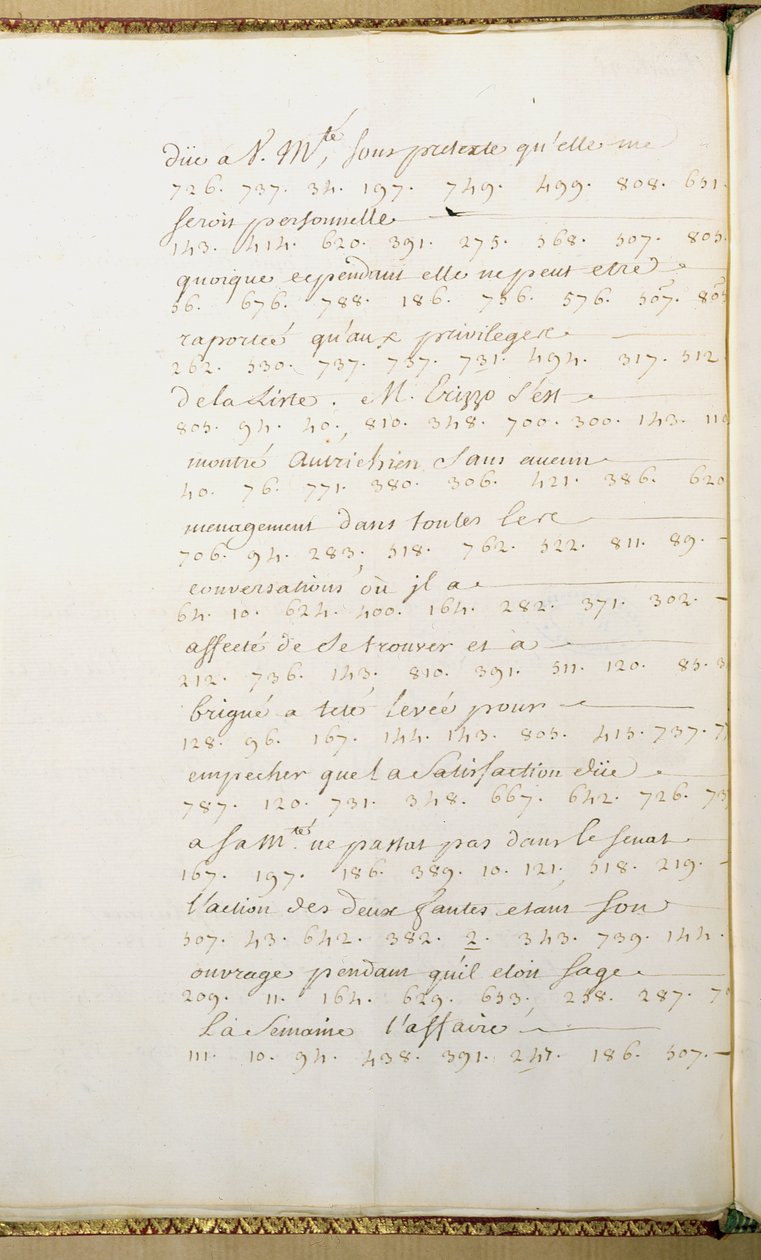 düe a V. M.té, sous pretexte qu'elle me
726. 737. 34. 197. 749. 499. 808. 651.
seroit personnelle
143. 414. 620. 391. 275. 568. 507. 805.
quoique cependant elle ne peut etre
56. 676. 788. 186. 756. 576. 507. 805
raportée qu'aux privileges
262. 530. 737. 757. 731. 494. 317. 512
de la Liste. M. Erizzo s'est
805. 94. 40. 810. 348. 700. 300. 143. 110
montré Autrichien sans aucun
40. 76. 771. 380. 306. 421. 386. 620
menagement dans toutes les
706. 94. 283. 518. 762. 522. 811. 89.
conversations où il a
64. 10. 624. 400. 164. 282. 371. 302.
affecté de se trouver et a
212. 736. 143. 810. 391. 511. 120. 85. 3
brigué a teté levée pour
128. 96. 167. 144. 143. 805. 415. 737. 7
empecher que la Satisfaction düe
787. 120. 731. 348. 667. 642. 726. 73
a sa M.té ne passat pas dans le senat
167. 197. 186. 389. 10. 121. 518. 219.
l'action des deux fantes etant son
507. 43. 642. 382. 2. 343. 739. 144.
ouvrage pendant qu'il etoit sage
209. 11. 164. 629. 653. 258. 287. 7
la Semaine l'affaire
111. 10. 94. 438. 391. 247. 186. 507.